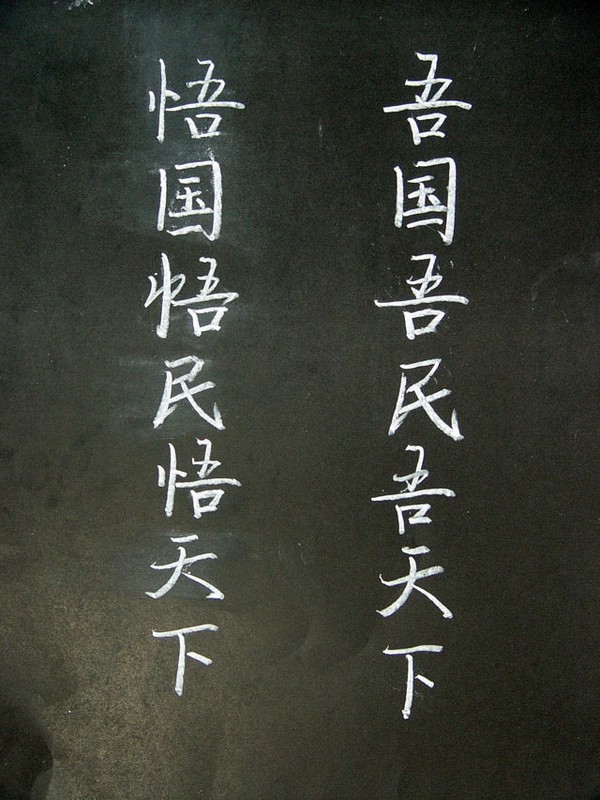 吾国吾民吾天下
悟国悟民悟天下